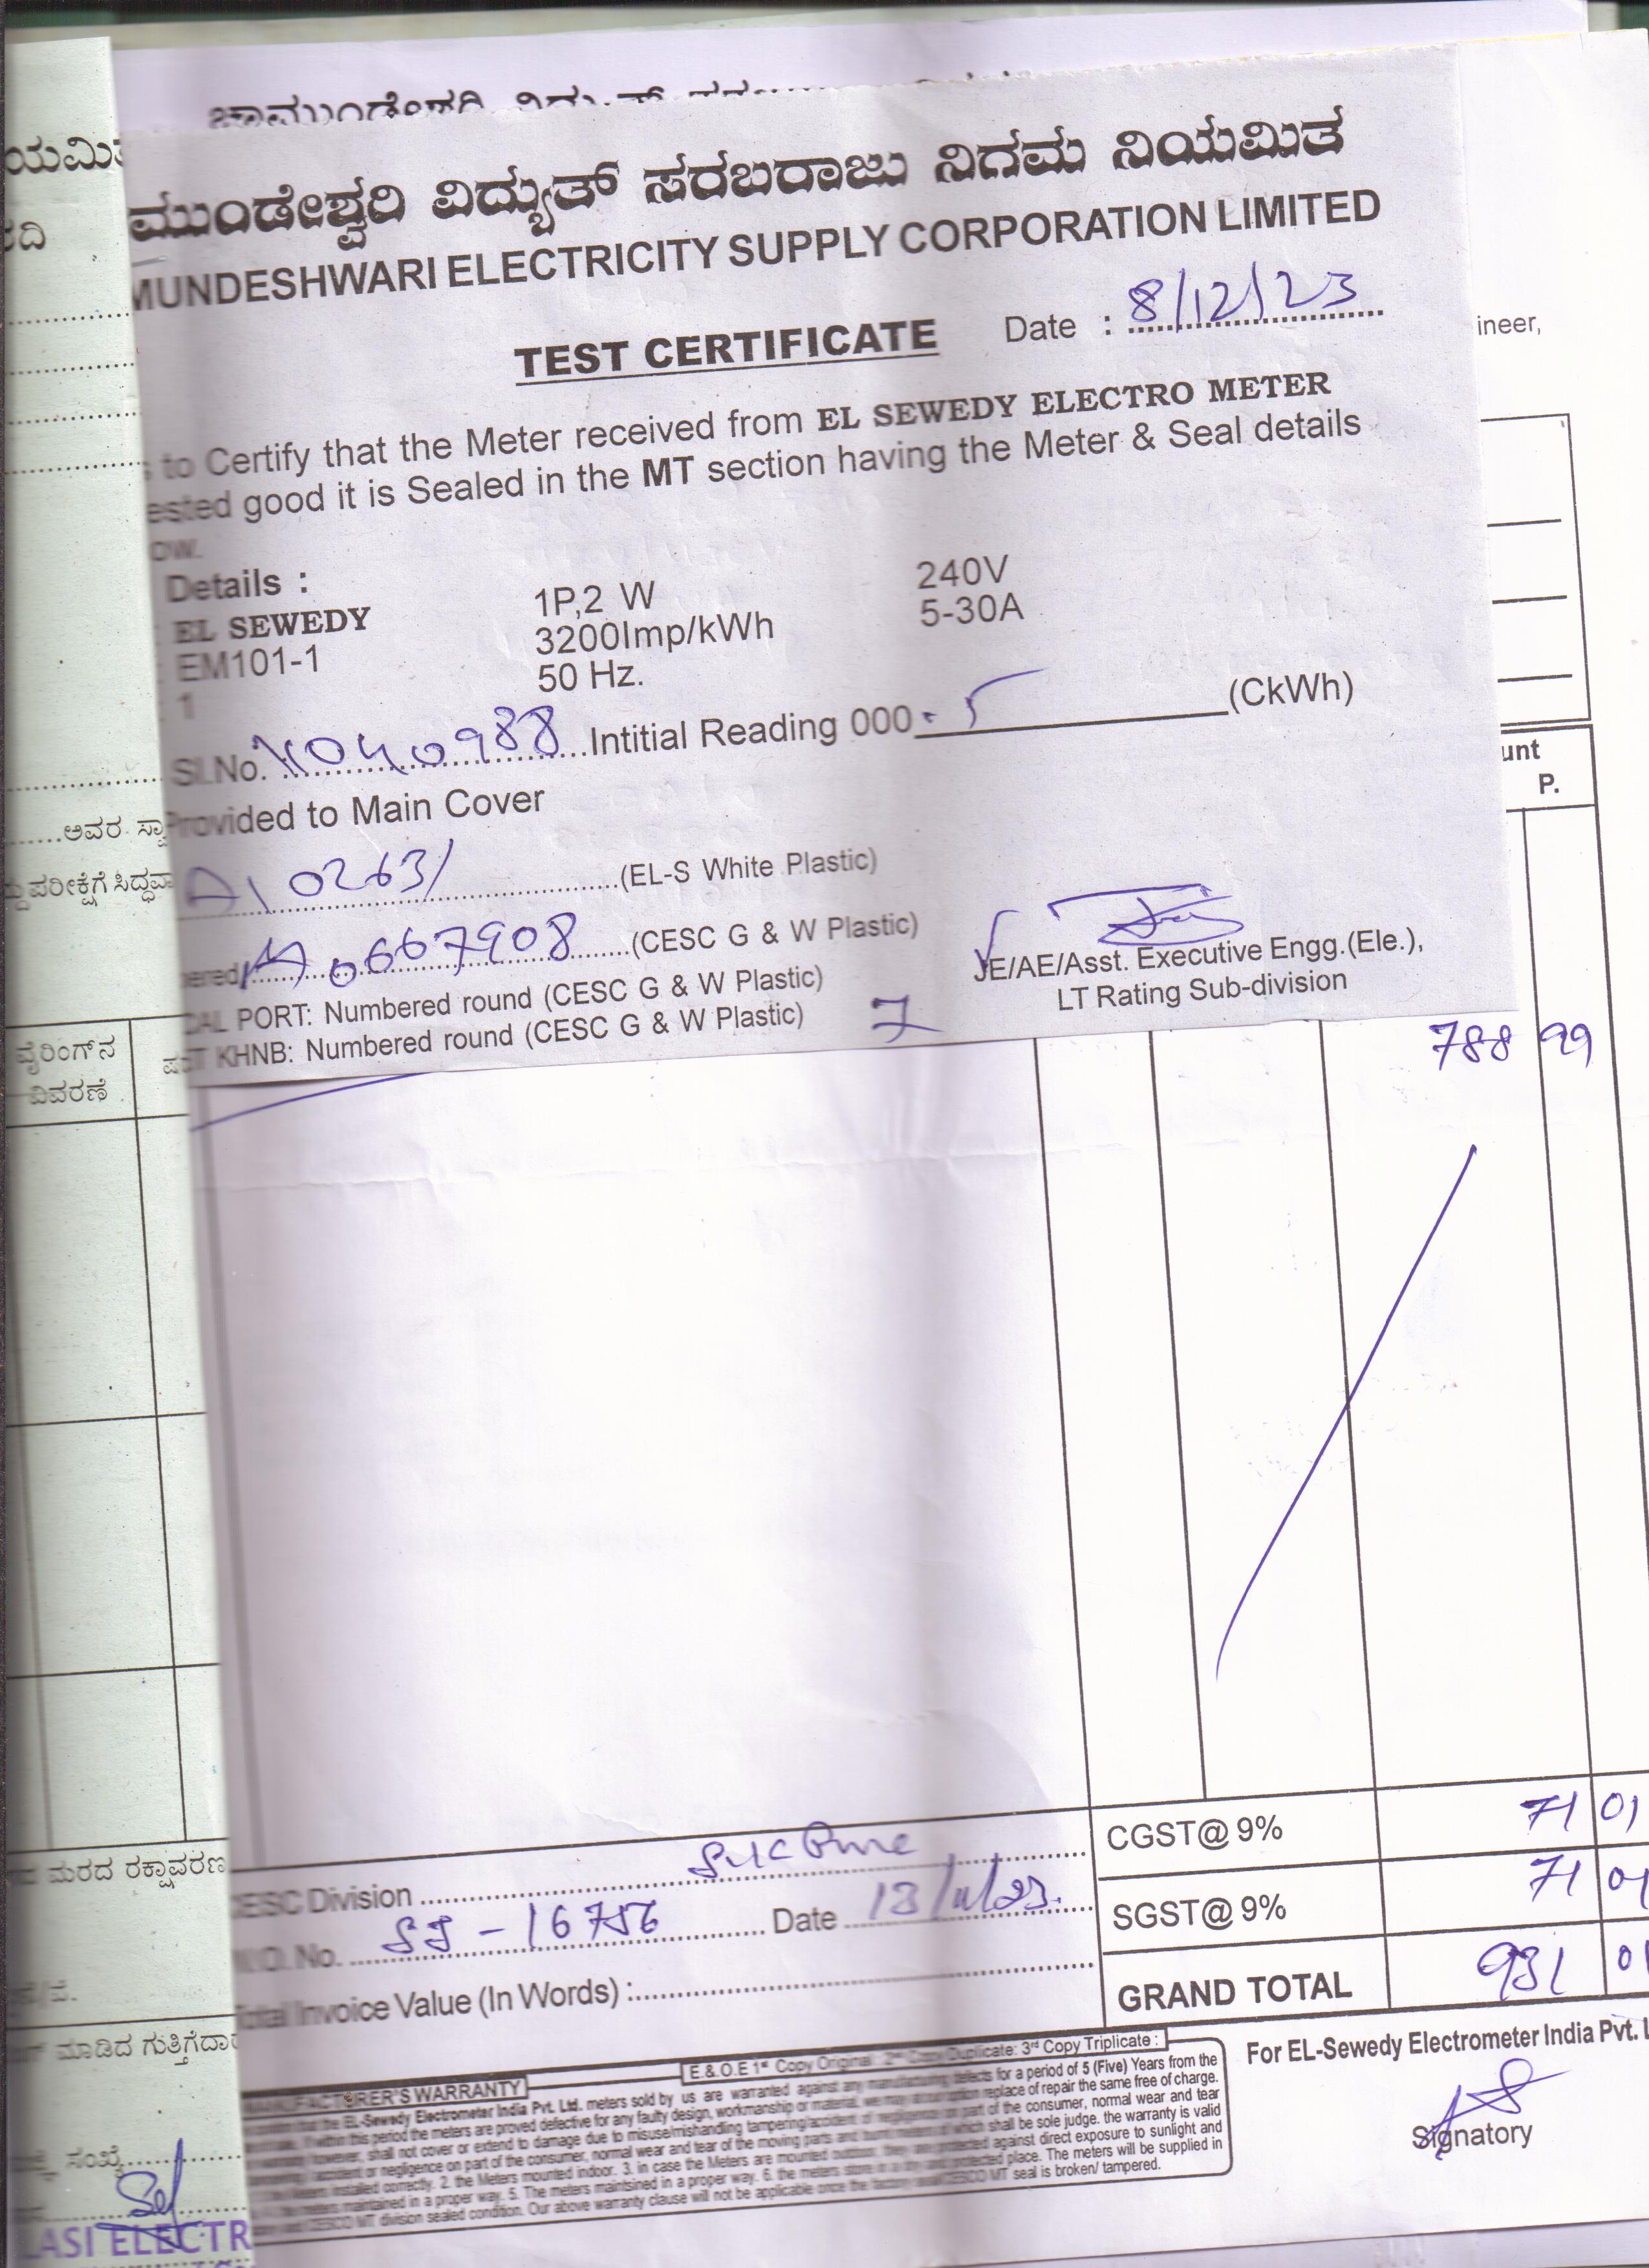 ಮುಂಡೇಶ್ವರಿ ವಿದ್ಯುತ್ ಸರಬರಾಜು ನಿಗಮ ನಿಯಮಿತ
MUNDESHWARI ELECTRICITY SUPPLY CORPORATION LIMITED
TEST CERTIFICATE Date : 8/12/23
ineer,
to Certify that the Meter received from EL SEWEDY ELECTRO METER
ested good it is Sealed in the MT section having the Meter & Seal details
ow.
Details :
EL SEWEDY 1P,2 W 240V
EM101-1 3200Imp/kWh 5-30A
1 50 Hz.
Sl.No. Intitial Reading 000.5 (CkWh)
unt
P.
Provided to Main Cover
ಅವರ ಸ್ವಾ
ಪರೀಕ್ಷೆಗೆ ಸಿದ್ಧವಾ
A1 02631 (EL-S White Plastic)
bered 0667908 (CESC G & W Plastic)
CAL PORT: Numbered round (CESC G & W Plastic)
T KHNB: Numbered round (CESC G & W Plastic) 7
JE/AE/Asst. Executive Engg.(Ele.),
LT Rating Sub-division
ವೈರಿಂಗ್‌ನ
ವಿವರಣೆ
788 99
CGST@ 9% 71 01
ಮರದ ರಕ್ಷಾವರಣ
CESC Division
SGST@ 9% 71 01
W.O. No. SJ - 16756 Date 13/11/23.
GRAND TOTAL 931 01
Total Invoice Value (In Words) :
ಮಾಡಿದ ಗುತ್ತಿಗೆದಾ
E. & O.E 1st Copy Original: 2nd Copy Duplicate: 3rd Copy Triplicate :
For EL-Sewedy Electrometer India Pvt. L
MANUFACTORER'S WARRANTY
EL-Sewedy Electrometer India Pvt. Ltd. meters sold by us are warranted against any manufacturing defects for a period of 5 (Five) Years from the
within this period the meters are proved defective for any faulty design, workmanship or material, replace of repair the same free of charge.
However, shall not cover or extend to damage due to misuse/mishandling tampering/accident of negligence on part of the consumer, normal wear and tear
accident or negligence on part of the consumer, normal wear and tear of the moving parts and which shall be sole judge. the warranty is valid
Meters installed correctly. 2. the Meters mounted indoor. 3. in case the Meters are mounted outdoor, against direct exposure to sunlight and
meters maintained in a proper way. 5. The meters maintsined in a proper way. 6. the meters store in a protected place. The meters will be supplied in
MT division sealed condition. Our above warranty clause will not be applicable once the MT seal is broken/ tampered.
Signatory
ಸಂಖ್ಯೆ
LASI ELECTR